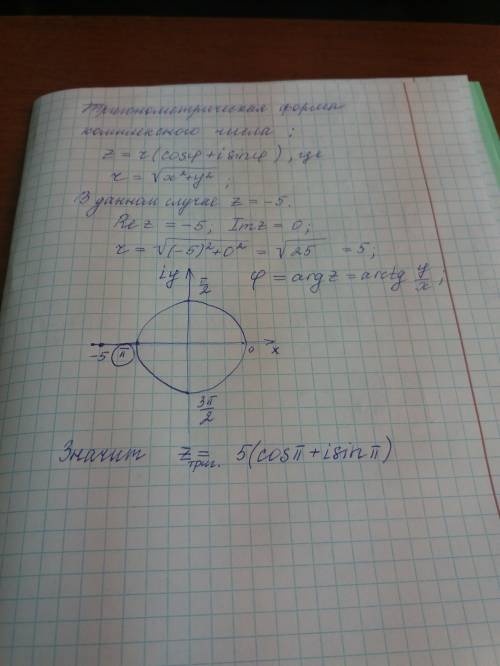 Тригонометрическая форма
комплексного числа ;
z = r (cosφ + i sinφ) , где
r = √x² + y² ;
В данном случае z = -5.
Re z = -5; Im z = 0;
r = √(-5)² + 0² = √25 = 5;
iy π/2 φ = arg z = arctg y/x ;
-5 π 0 x
3π/2
Значит z триг. = 5(cosπ + i sinπ)